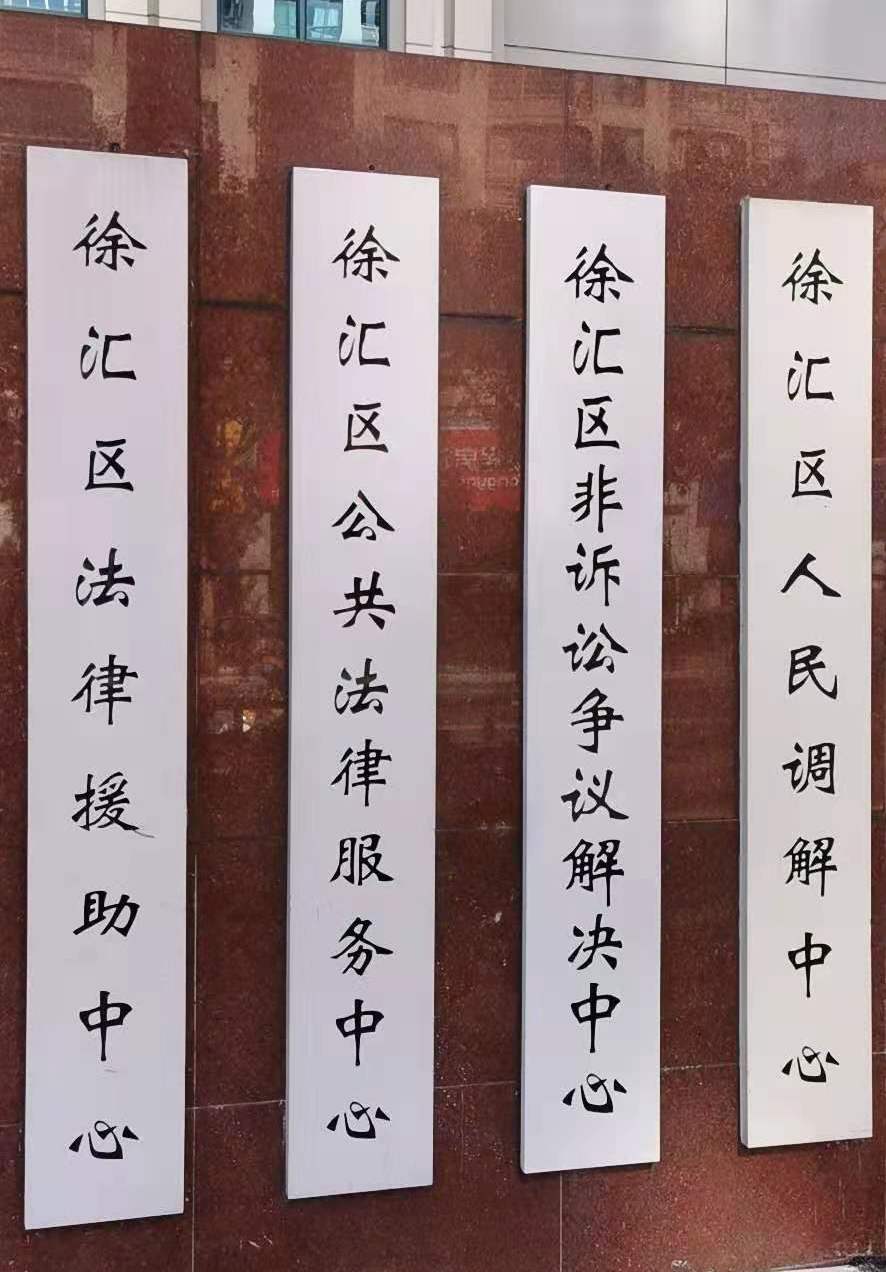 徐汇区法律援助中心
徐汇区公共法律服务中心
徐汇区非诉讼争议解决中心
徐汇区人民调解中心